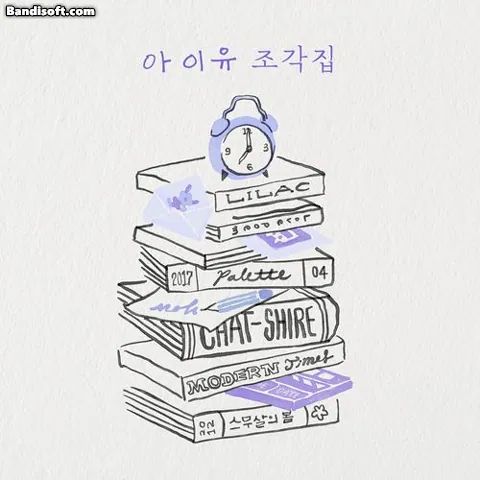 Bandisoft.com
아이유 조각집
11
9 3
6
LILAC
2017 Palette 04
CHAT-SHIRE
MODERN Times
2012 스무살의 봄